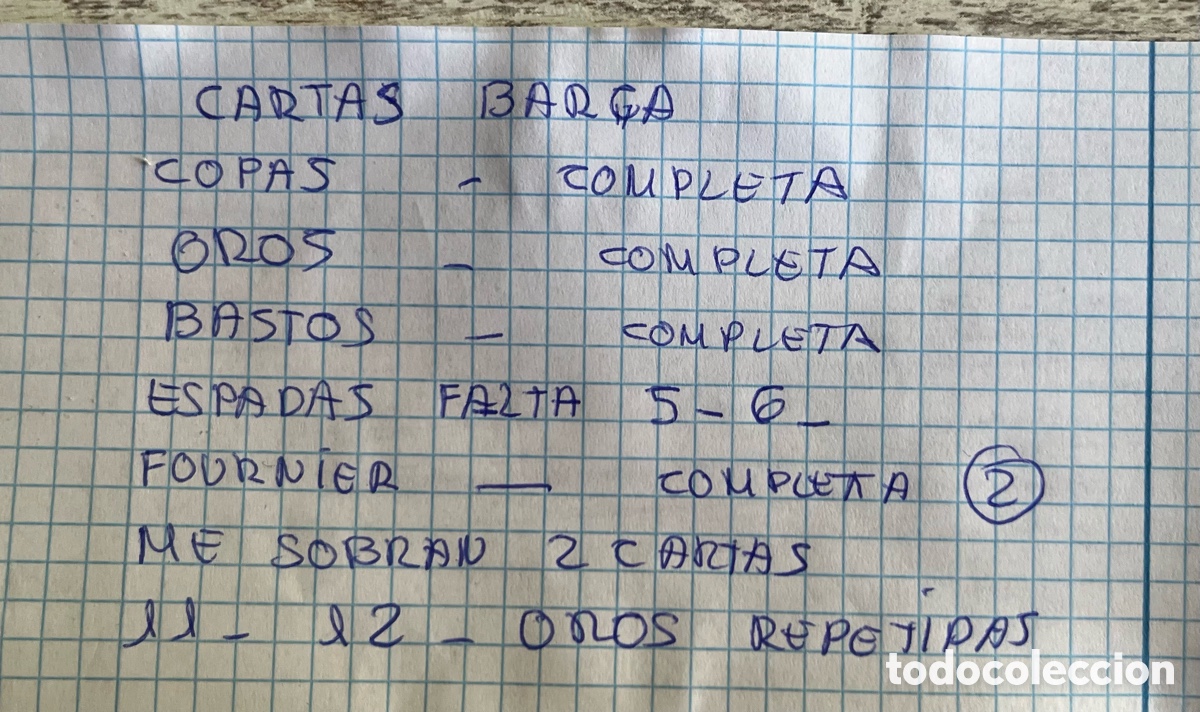 CARTAS BARÇA
COPAS - COMPLETA
OROS - COMPLETA
BASTOS - COMPLETA
ESPADAS FALTA 5 - 6 -
FOURNIER — COMPLETA 2
ME SOBRAN 2 CARTAS
11 - 12 - OROS REPETIDAS
todocoleccion